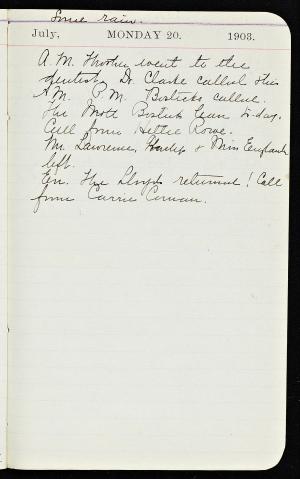 Some rain.
July, MONDAY 20. 1903.
A.M. went to the
dentist. Dr. Clarke called this
A.M. P.M. Bosticks called.
The Mott Bosticks to-day.
Call from Hettie Rowe.
Mr. Lawrence, & Miss England
left.
Ev. The Lloyds returned! Call
from Carrie